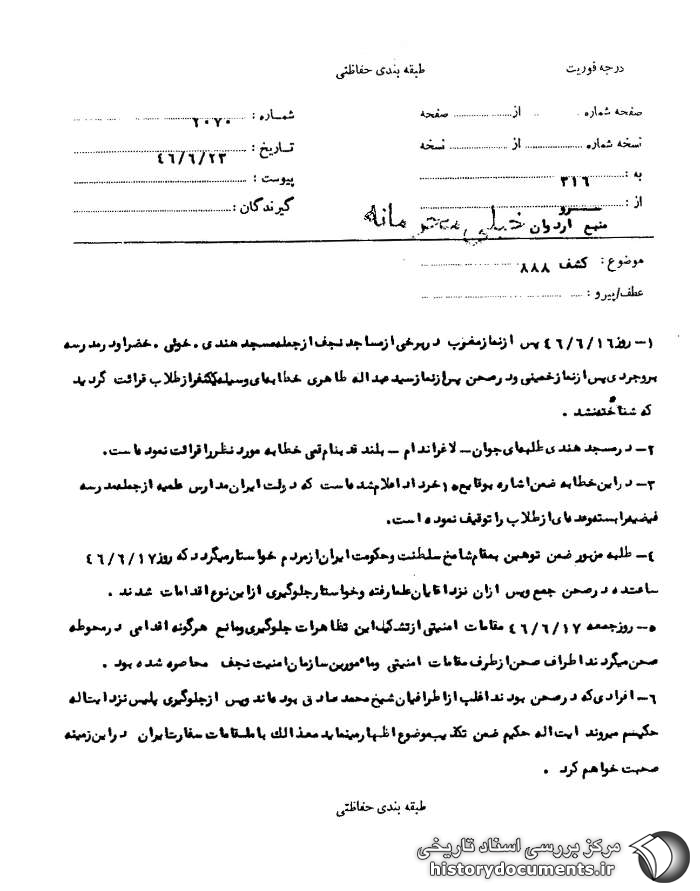 درجه فوریت
طبقه بندی حفاظتی
صفحه شماره .......... از .......... صفحه
شماره : ۲۰۷۰
نسخه شماره .......... از .......... نسخه
تاریخ : ۴۶/۶/۲۳
به : ۳۱۶
پیوست :
از : سرو
گیرندگان :
منبع اردوان
خیلی محرمانه
موضوع : کشف ۸۸۸
عطف/پیرو :
۱- روز ۴۶/۶/۱۶ پس از نماز مغرب در برخی از مساجد نجف از جمله مسجد هندی . خوئی . خضرا و در مدرسه
بروجردی پس از نماز خمینی و در صحن پس از نماز سید عبداله طاهری خطابه‌ای وسیله یکنفر از طلاب قرائت گردید
که شناخته نشد .
۲- در مسجد هندی طلبه‌ای جوان - لاغر اندام - بلند قد بنام قمی خطابه مورد نظر را قرائت نموده است.
۳- در این خطابه ضمن اشاره بوقایع ۱۵ خرداد اعلام شده است که دولت ایران مدارس علمیه از جمله مدرسه
فیضیه را بسته و عده‌ای از طلاب را توقیف نموده است.
۴- طلبه مزبور ضمن توهین بمقام شامخ سلطنت و حکومت ایران از مردم خواستار میگردد که روز ۴۶/۶/۱۷
ساعت ده در صحن جمع و پس از آن نزد آقایان علما رفته و خواستار جلوگیری از این نوع اقدامات شدند .
۵- روز جمعه ۴۶/۶/۱۷ مقامات امنیتی از تشکیل این تظاهرات جلوگیری و مانع هرگونه اقدامی در محوطه
صحن میگردند اطراف صحن از طرف مقامات امنیتی و مامورین سازمان امنیت نجف محاصره شده بود .
۶- افرادی که در صحن بودند اغلب از اطرافیان شیخ محمد صادق بوده‌اند و پس از جلوگیری پلیس نزد آیت‌اله
حکیم میروند آیت‌اله حکیم ضمن تکذیب موضوع اظهار مینماید معذالک با مقامات سفارت ایران در این زمینه
صحبت خواهم کرد .
طبقه بندی حفاظتی
مرکز بررسی اسناد تاریخی
historydocuments.ir